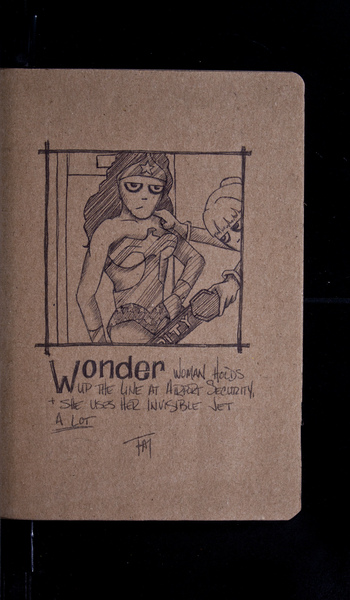 RITY
Wonder WOMAN HOLDS
UP THE LINE AT AIRPORT SECURITY,
+ SHE USES HER INVISIBLE JET
A LOT